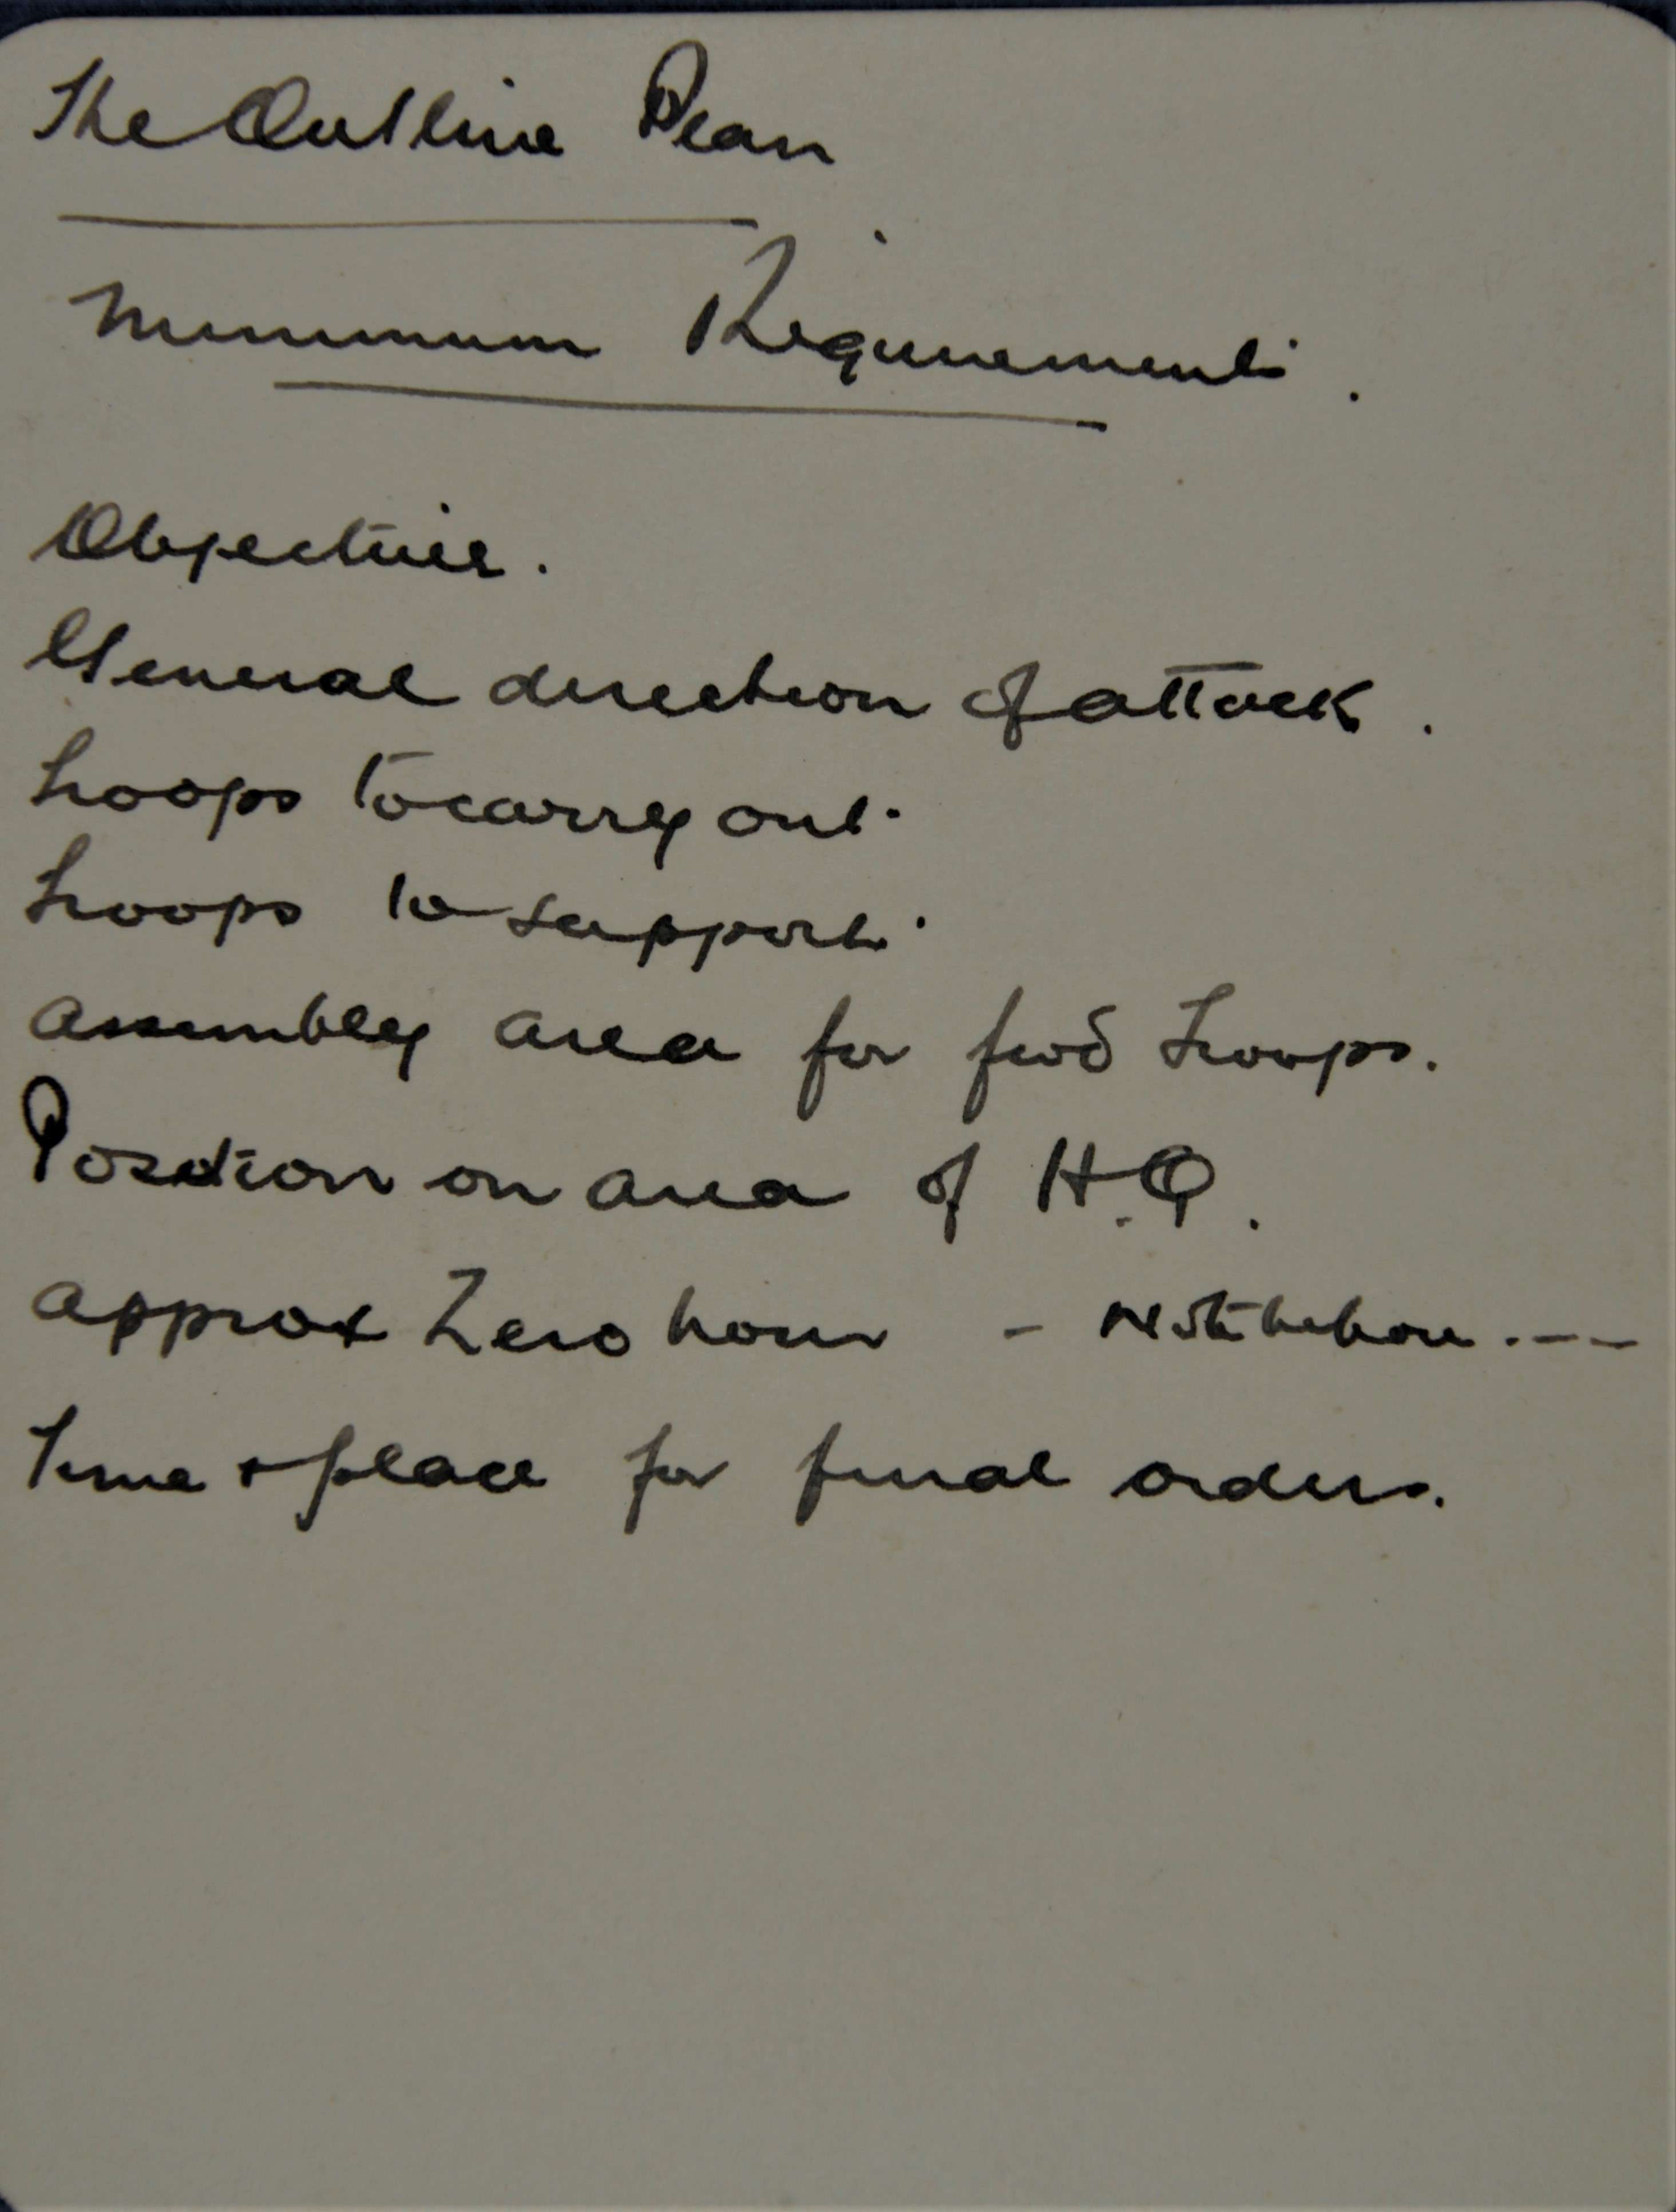 The Outline Plan
Minimum Requirements.
Objective.
General direction of attack.
Troops to carry out.
Troops to support.
Assembly area for fwd troops.
Position or area of H.Q.
Approx Zero hour - Not before . - -
Time + place for final orders.